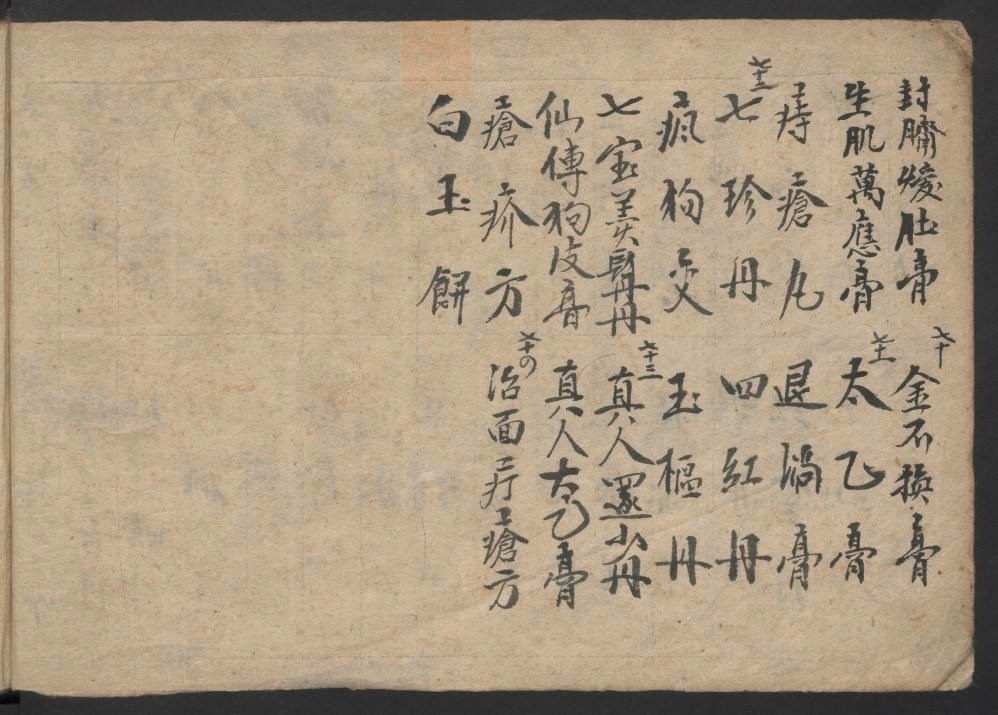 封臍煖肚膏　六十　金不換膏
生肌萬應膏　六十一　太乙膏
痔瘡丸　退消膏
六十二　七珍丹　四紅丹
瘋狗灵　玉樞丹
七宝美髯丹　六十三　真人還少丹
仙傳狗皮膏　真人太乙膏
瘡疥方　六十〤　治面疔瘡方
白玉餅